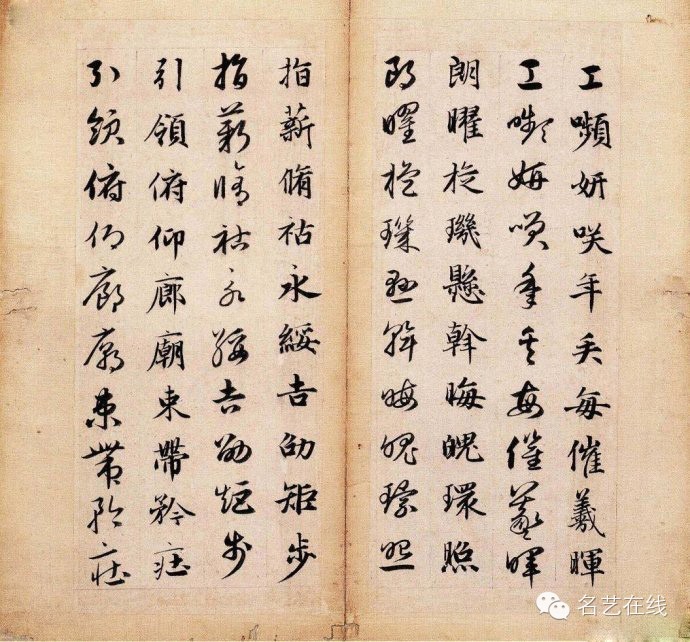 工嚬妍咲年矢每催羲暉
工嚬妍咲年矢每催羲暉
朗曜旋璣懸斡晦魄環照
朗曜旋璣懸斡晦魄環照
指薪脩祜永綏吉劭矩步
指薪脩祜永綏吉劭矩步
引領俯仰廊廟束帶矜莊
引領俯仰廊廟束帶矜莊
名艺在线